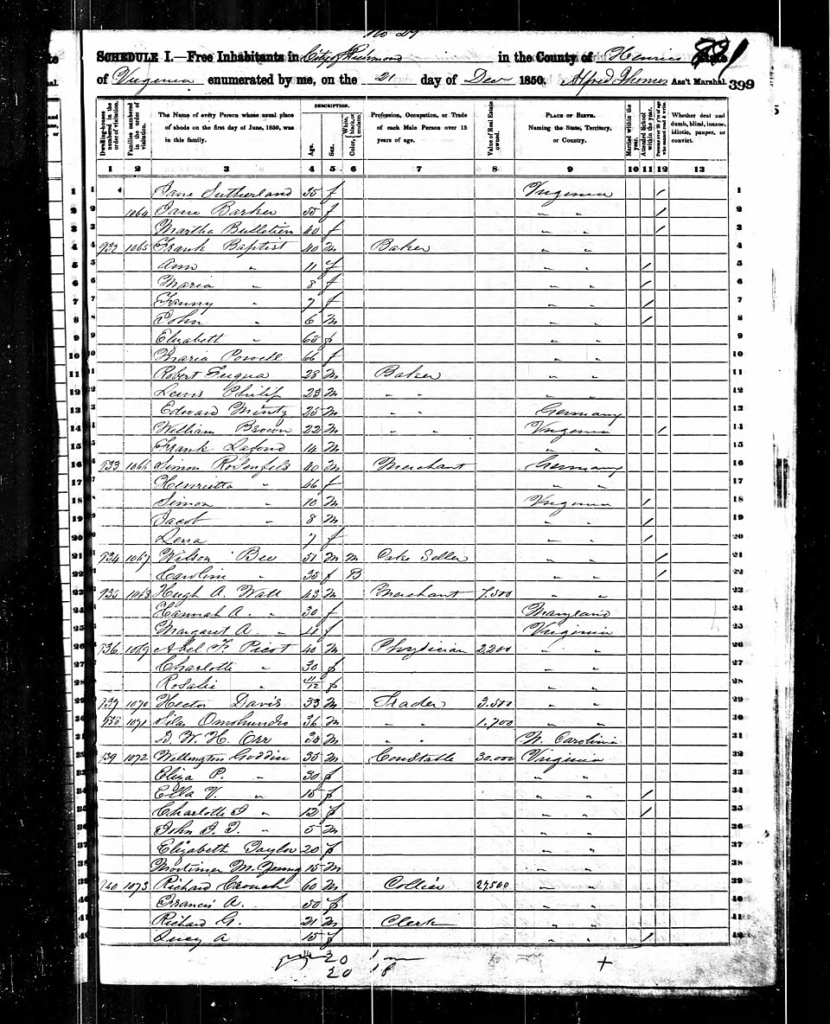 No 29
SCHEDULE I.—Free Inhabitants in City of Richmond in the County of Henrico State
of Virginia enumerated by me, on the 21 day of Dec 1850. Alfred Thomas Ass't Marshal. 399
Dwelling-houses numbered in the order of visitation.
Families numbered in the order of visitation.
The Name of every Person whose usual place of abode on the first day of June, 1850, was in this family.
DESCRIPTION.
Age. Sex. Color, White, black, or mulatto.
Profession, Occupation, or Trade of each Male Person over 15 years of age.
Value of Real Estate owned.
PLACE OF BIRTH. Naming the State, Territory, or Country.
Married within the year.
Attended School within the year.
Whether deaf and dumb, blind, insane, idiotic, pauper, or convict.
1 2 3 4 5 6 7 8 9 10 11 12 13
1 Jane Sutherland 35 f Virginia / 1
2 1064 Jane Barker 55 f " " / 2
3 Martha Bulletien 40 f " " / 3
4 732 1065 Frank Baptist 40 M Baker " " 4
5 Ann " 11 f " " / 5
6 Maria " 8 f " " / 6
7 Fanny " 7 f " " / 7
8 John " 6 M " " / 8
9 Elizabeth " 65 f " " 9
10 Maria Powell 66 f " " 10
11 Robert Fuqua 28 M Baker " " 11
12 Lewis Philip 23 M " " " " 12
13 Edward Mintz 25 M " " Germany 13
14 William Brown 22 M Virginia / 14
15 Frank Lafond 14 M " " 15
16 733 1066 Simon Rosenfels 40 M Merchant Germany 16
17 Henrietta " 46 f " " 17
18 Simon " 10 M Virginia / 18
19 Jacob " 8 M " " / 19
20 Lena " 7 f " " / 20
21 734 1067 Wilson Bee 51 M M Cake Seller " " / 21
22 Caroline " 35 f B " " / 22
23 735 1068 Hugh A. Watt 43 M Merchant 7.500 " " 23
24 Hannah A. " 30 f Maryland 24
25 Margaret A. " 4 f Virginia 25
26 736 1069 Abel F. Picot 40 M Physician 2200 " " 26
27 Charlotte " 30 f " " 27
28 Rosalie " 11/12 f " " 28
29 737 1070 Hector Davis 33 M Trader 3.500 " " 29
30 738 1071 Silas Omohundro 36 M " " 1.700 " " 30
31 D. W. H. Orr 34 M " " N. Carolina 31
32 739 1072 Wellington Goddin 35 M Constable 30.000 Virginia 32
33 Eliza P. " 30 f " " 33
34 Ella V. " 15 f " " / 34
35 Charlotte J " 12 f " " / 35
36 John J. T. " 5 M " " 36
37 Elizabeth Taylor 20 f " " 37
38 Mortimer M. Young 15 M " " 38
39 740 1073 Richard Crouch 60 M Collier 27,500 " " 39
40 Francis A. 50 f " " 40
41 Richard G. 21 M Clerk " " 41
42 Lucy A 15 f " " / 42
20 1 m
20 18 +